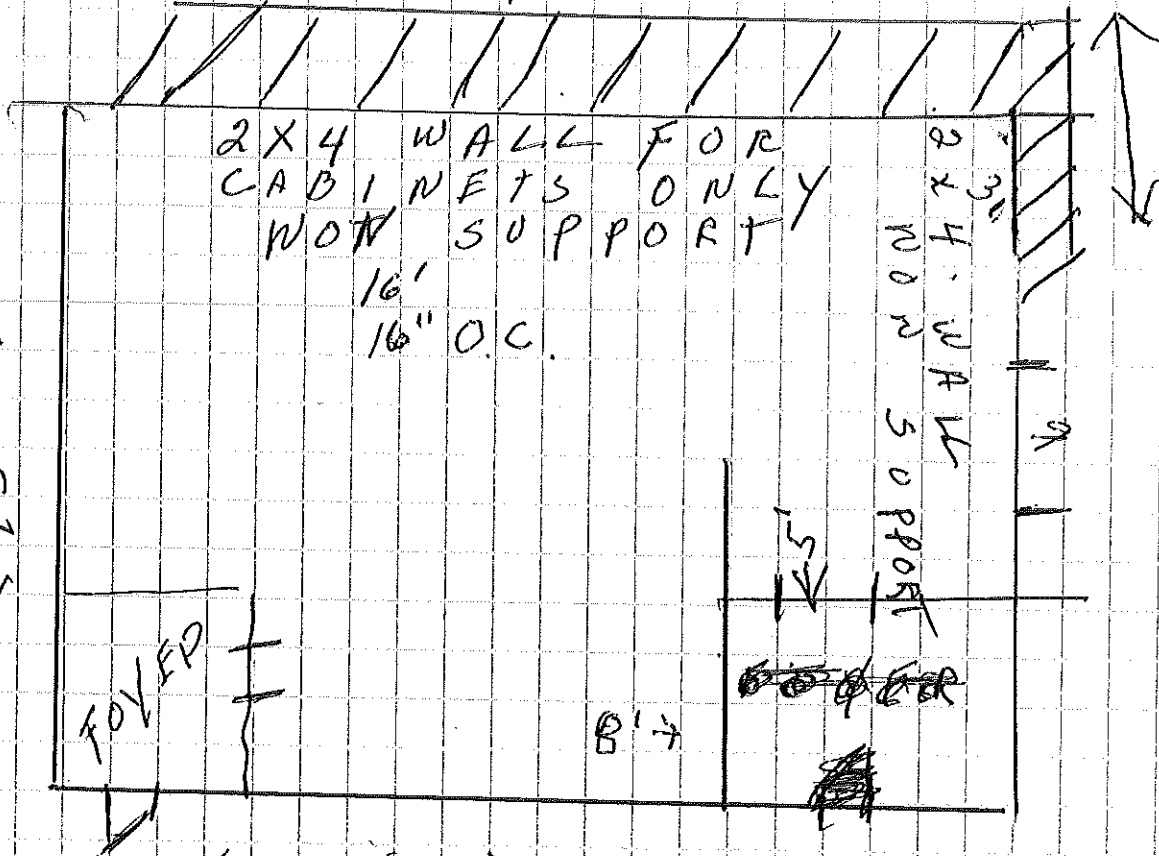 2X4 WALL FOR
CABINETS ONLY
NON SUPPORT
16'
16" O.C.
2X4. WALL
NON SOPPORT
3'
5'
FOYER
8'